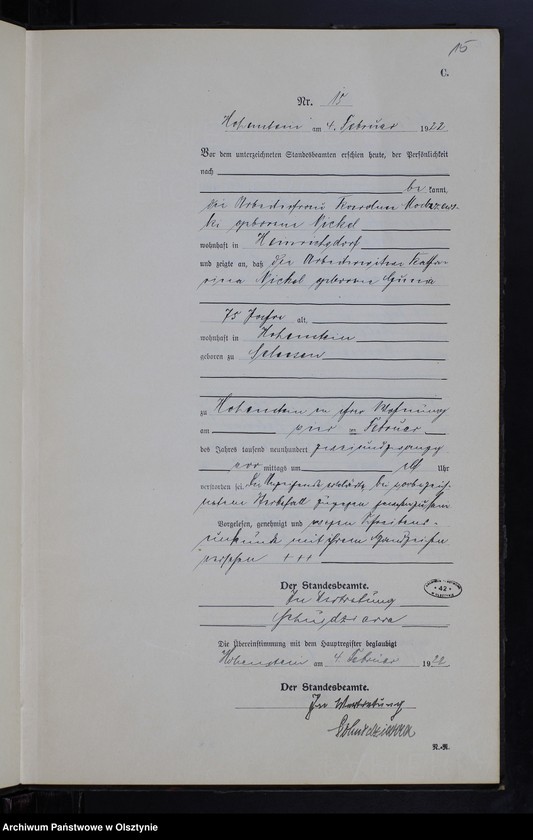 15
C.
Nr. 15
Hohenstein am 4. Februar 1922
Vor dem unterzeichneten Standesbeamten erschien heute, der Persönlichkeit
nach
be kannt,
die Arbeiterfrau Karoline
geborene Nickel
wohnhaft in Heinrichsdorf
und zeigte an, daß die Arbeiterwitwe
Nickel geborene
75 Jahre alt,
wohnhaft in Hohenstein
geboren zu
zu Hohenstein in ihrer Wohnung
am Februar
des Jahres tausend neunhundert zweiundzwanzig
vor mittags um elf Uhr
verstorben sei. Die erklärte, bei
Sterbefall zugegen gewesen zu sein
Vorgelesen, genehmigt und wegen Schreibens-
unkunde mit ihrem Handzeichen
versehen +++
Der Standesbeamte.
In Vertretung
Die Übereinstimmung mit dem Hauptregister beglaubigt
Hohenstein am 4. Februar 1922
Der Standesbeamte.
In Vertretung
42
R.-R.
Archiwum Państwowe w Olsztynie